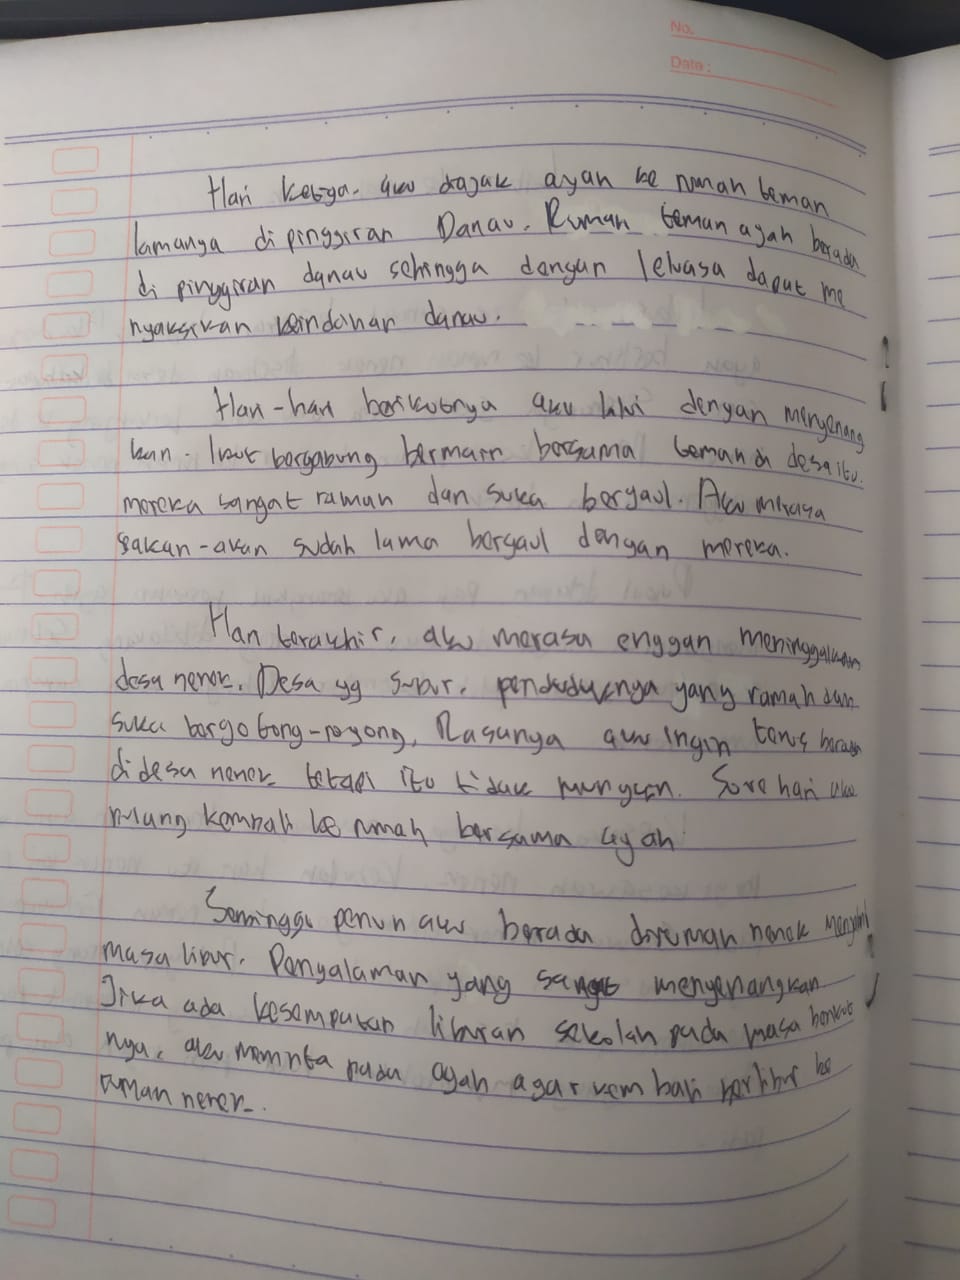 No.
Date:
Hari ketiga. aku diajak ayah ke rumah teman
lamanya di pinggiran Danau. Rumah teman ayah berada
di pinggiran danau sehingga dengan leluasa dapat me
nyaksikan keindahan danau.
Hari-hari berikutnya aku lalui dengan menyenang
kan. Ikut bergabung bermain bersama teman di desa itu.
mereka sangat ramah dan suka bergaul. Aku merasa
seakan-akan sudah lama bergaul dengan mereka.
Hari terakhir, aku merasa enggan meninggalkan
desa nenek. Desa yg subur, penduduknya yang ramah dan
suka bergotong-royong, Rasanya aku ingin terus berada
didesa nenek tetapi itu tidak mungkin. Sore hari aku
pulang kembali ke rumah bersama ayah
Seminggu penuh aku berada dirumah nenek
masa libur. Pengalaman yang sangat menyenangkan
Jika ada kesempatan liburan sekolah pada masa berikut
nya, aku meminta pada ayah agar kembali berlibur ke
rumah nenek.